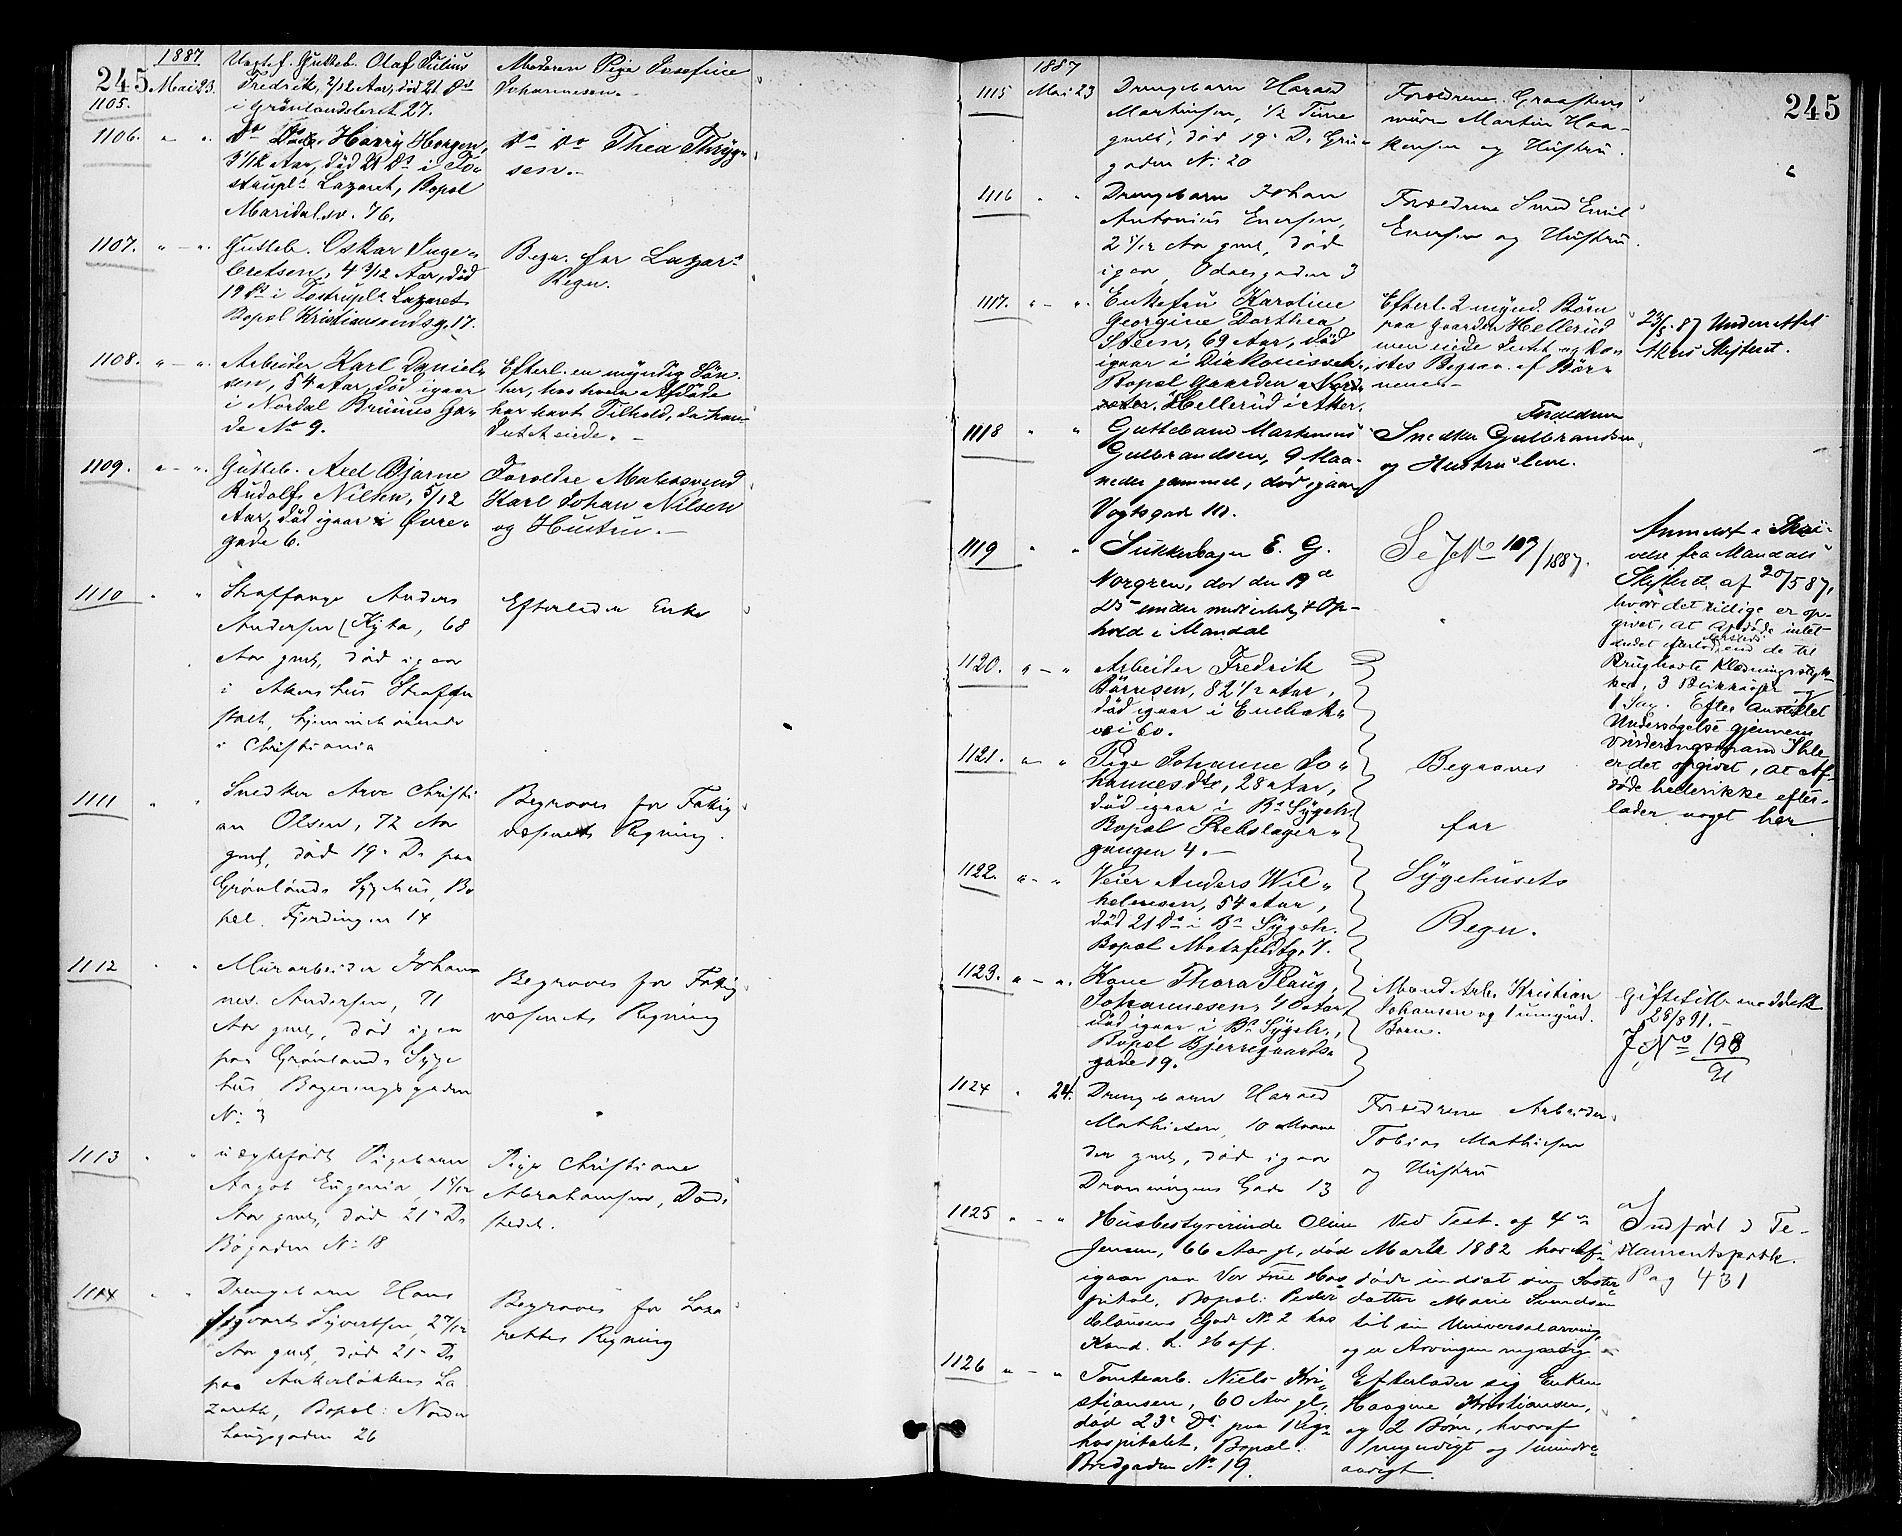 245
1887
Mai 23.
1105.
Uegtef. Gutteb. Olaf Julius
Fredrik, 2/12 Aar, død 21 Ds
i Grønlandsleret 27.
Moderen Pige Josefine
Johannesen.
1106.
Do Do Harry Horgen,
3/12 Aar, død 21 Ds i To-
strupls Lazaret, Bopæl
Maridalsv. 76.
Do Do Thea Thryg-
sen.
1107.
Gutteb. Oskar Inge-
bretsen, 4 3/12 Aar, død
19 Ds i Tostrupls Lazaret
Bopæl Kristiansandsg. 17.
Begr. for Lazar-s
Regn.
1108.
Arbeider Karl Daniel-
sen, 54 Aar, død igaar
i Nordal Bruuns Ga-
de No 9.
Efterl. en myndig Søn
her, hos hvem Afdøde
har havt Tilhold, da han
Intet eiede.
1109.
Gutteb. Axel Bjarne
Rudolf Nilsen, 5/12
Aar, død igaar i Øvre-
gade 6.
Forældre Matrosvend
Karl Johan Nilsen
og Hustru.
1110
Straffange Anders
Andersen Kyta, 68
Aar gml, død igaar
i Akershus Strafan
stalt, hjemmehørende
i Christiania
Efterlader Enke
1111
Snedker Arve Christi
an Olsen, 72 Aar
gml, død 19- Ds paa
Grønlands Sygehus, Bo
pæl. Fjerdingen 14
Begraves for Fattig
væsenets Regning.
1112
Murarbeider Johan
nes Andersen, 71
Aar gml, død igaar
paa Grønlands Syge
hus, Bageringsgaden
No 3
Begraves for Fattig
væsenets Regning
1113
uægtefødt Pigebarn
Aagot Eugenia,
Aar gml, død 21- Ds
Bøgaden No 18
Pige Christiane
Abrahamsen, Døds
stedet.
1114
Drengebarn Hans
Sigvart Syvertsen, 2
Aar gml, død 21- Ds
paa Ankerløkkens La
zareth, Bopæl: Nordre
Langgaden 26
Begraves for Laza
rettes Regning
245
1887
1115
Mai 23
Drengebarn Harald
Martinsen, 1/2 Time
gml, død 19- Ds Grün
gaden No 20
Forældrene. Graastens
murer Martin Haa-
kensen og Hustru.
1116
Drengebarn Johan
Antonius Enersen,
2 Aar gml, død
igaar, Odalsgaden 3
Forældrene Smed Emil
Enersen og Hustru.
1117.
Enkefru Karoline
Georgine Dorthea
Steen, 69 Aar, død
igaar i Diakonissehs.,
Bopæl Gaarden
Hellerud i Aker.
Efterl. 2 mynd. Børn
paa Gaarden Hellerud
men eiede Intet og
Begrav. af Bør-
nene.
24/5 87 Underrettet
Akers Skifteret.
1118
Guttebarn Martinius
Gulbrandsen, 9 Maa-
neder gammel, død igaar
Vogtsgade 10.
Forældrene
Snedker Gulbrandsen
og Hustru leve.
1119
Sukkerbager E. G.
Norgren, død den 19de
ds under midlertidigt Op-
hold i Mandal
Se JNo 107/1887.
Anmeldt i Skri-
velse fra Mandals
Skifteret af 20/5 87,
hvori det tillige er op-
givet, at Afdøde intet
andet efterlod end de til
Brug havte Klædningsstyk-
ker, 3 Blikkasser og
1 Sag. Efter anstillet
Undersøgelse gjennem
Vurderingsmand Ihle
er det opgivet, at Af-
døde heller ikke efter-
lader noget her.
1120.
Arbeider Fredrik
Børresen, 82 1/2 Aar,
død igaar i Enebak-
vei 60.
1121.
Pige Johanne Jo-
hannesdtr, 28 Aar,
død igaar i Bs Sygeh.
Bopæl Rebslager-
gangen 4.
Begraves
for
Sygehusets
Regn.
1122.
Veier Anders Wil-
helmsen, 54 Aar,
død 21 Ds i Bs Sygeh.
Bopæl Motzfeldtg. 7.
1123.
Kone Thora Plaug,
Johannesen, 40 Aar,
død igaar i Bs Sygeh.,
Bopæl Bjerregaards-
gade 19.
Mand Arb. Kristian
Johansen og 1 umynd.
Barn.
Giftetill. meddelt
28/8 91.
J. No 198/91
1124
24.
Drengebarn Harald
Mathisen, 10 Maane
der gml, død igaar
Dronningens Gade 13
Forældrene Arbeider
Tobias Mathisen
og Hustru
1125
Husbestyrerinde Oline
Jensen, 66 Aar gl, død
igaar paa Vor Frue Hos
pital, Bopæl: Peder
Clausens Gade No 2 hos
Kand. L. Hoff.
Ved Test. af 4de
Marts 1882 har Af-
døde indsat sin Søster
datter Marie Svendsen
til sin Universalarving,
og er Arvingen myndig.
Indført i Te-
stamentsprotk.
Pag 431
1126
Tomtearb. Niels Kri-
stiansen, 60 Aar gl,
død 23- Ds paa Rigs-
hospitalet, Bopæl:
Bredgaden No 19.
Efterlader sig Enken
Haagine Kristiansen,
og 2 Børn, hvoraf
1 myndigt og 1 mindre-
aarigt.